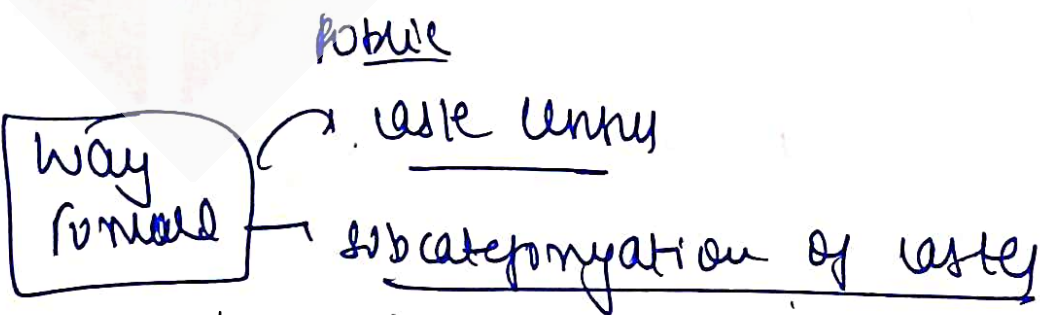 Public
Way
forward
caste census
subcategorization of castes